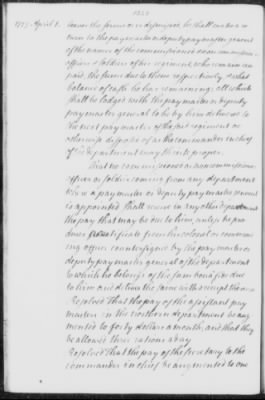 1775 April 1. leaves the same or is discharged, he shall make a re
turn to the paymaster or deputy paymaster general
of the names of the commissioned & non commission
officers & soldiers of his regiment, who remain un
paid, the sum due to them respectively & what
balance of cash he has remaining: all which
shall be lodged with the paymaster or deputy
paymaster general to be by him delivered to
the next paymaster of the said regiment or
otherwise disposed of as the commander in chief
of the department may think proper.
That no commissioned or non commission
officer or soldier coming from any department
where a paymaster or deputy paymaster general
is appointed shall receive in any other department
the pay that may be due to him, unless he pro
duces a certificate from his colonel or command
ing officer countersigned by the paymaster or
deputy paymaster general of the department
to which he belongs of the sum bona fide due
to him and define the same with a receipt thereon
Resolved that the pay of the assistant pay
master in the northern department be aug
mented to forty dollars a month, and that they
be allowed three rations a day
Resolved that the pay of the secretary to the
commander in chief be augmented to one